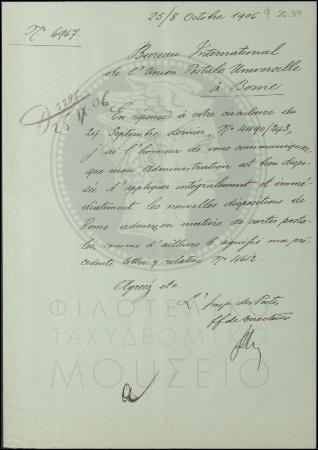 25/8 Octobre 1906
20.39
No 6967.
Bureau International
de l'Union Postale Universelle
à Berne
3826
25 IX 06
En réponse à votre circulaire du
24 Septembre dernier, No 4490/243,
j'ai l'honneur de vous communiquer,
que mon Administration est bien dispo-
sée d'appliquer intégralement et immé-
diatement les nouvelles dispositions de
Rome admises en matière de cartes posta-
les, comme d'ailleurs le signifie ma pré-
cédente lettre y relative No 4612
Agréez etc
L'Insp. des Postes
ff de Directeur
ΦΙΛΟΤΕ
ΤΑΧΥΔΡΟΜΙΚΟ
ΜΟΥΣΕΙΟ